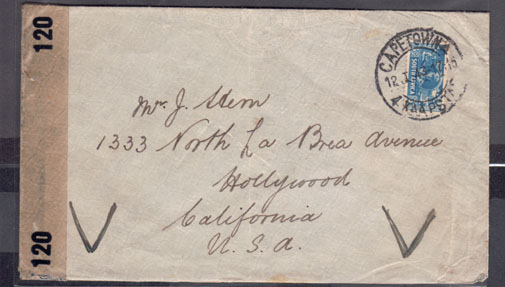 120
CAPETOWN
12 J
SOUTH AFRICA
KAAPSTAD
Mr. J. Stern
1333 North La Brea Avenue
Hollywood
California
U. S. A.
120